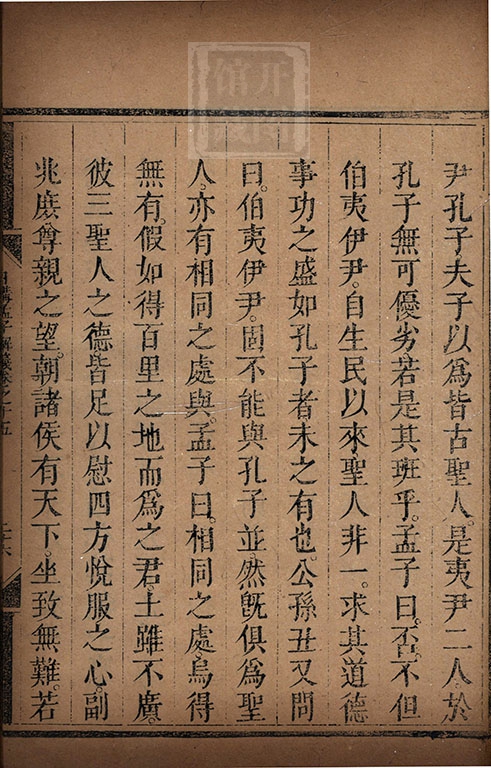 尹孔子夫子以爲皆古聖人。是夷尹二人於
孔子無可優劣若是其班乎。孟子曰。否。不但
伯夷伊尹。自生民以來聖人非一。求其道德
事功之盛如孔子者未之有也。公孫丑又問
曰。伯夷伊尹。固不能與孔子並。然旣俱爲聖
人。亦有相同之處與。孟子曰。相同之處。烏得
無有。假如得百里之地而爲之君。土雖不廣。
彼三聖人之德皆足以慰四方悅服之心。副
兆庶尊親之望。朝諸侯有天下。坐致無難。若
日講孟子解義卷之十五
二十六